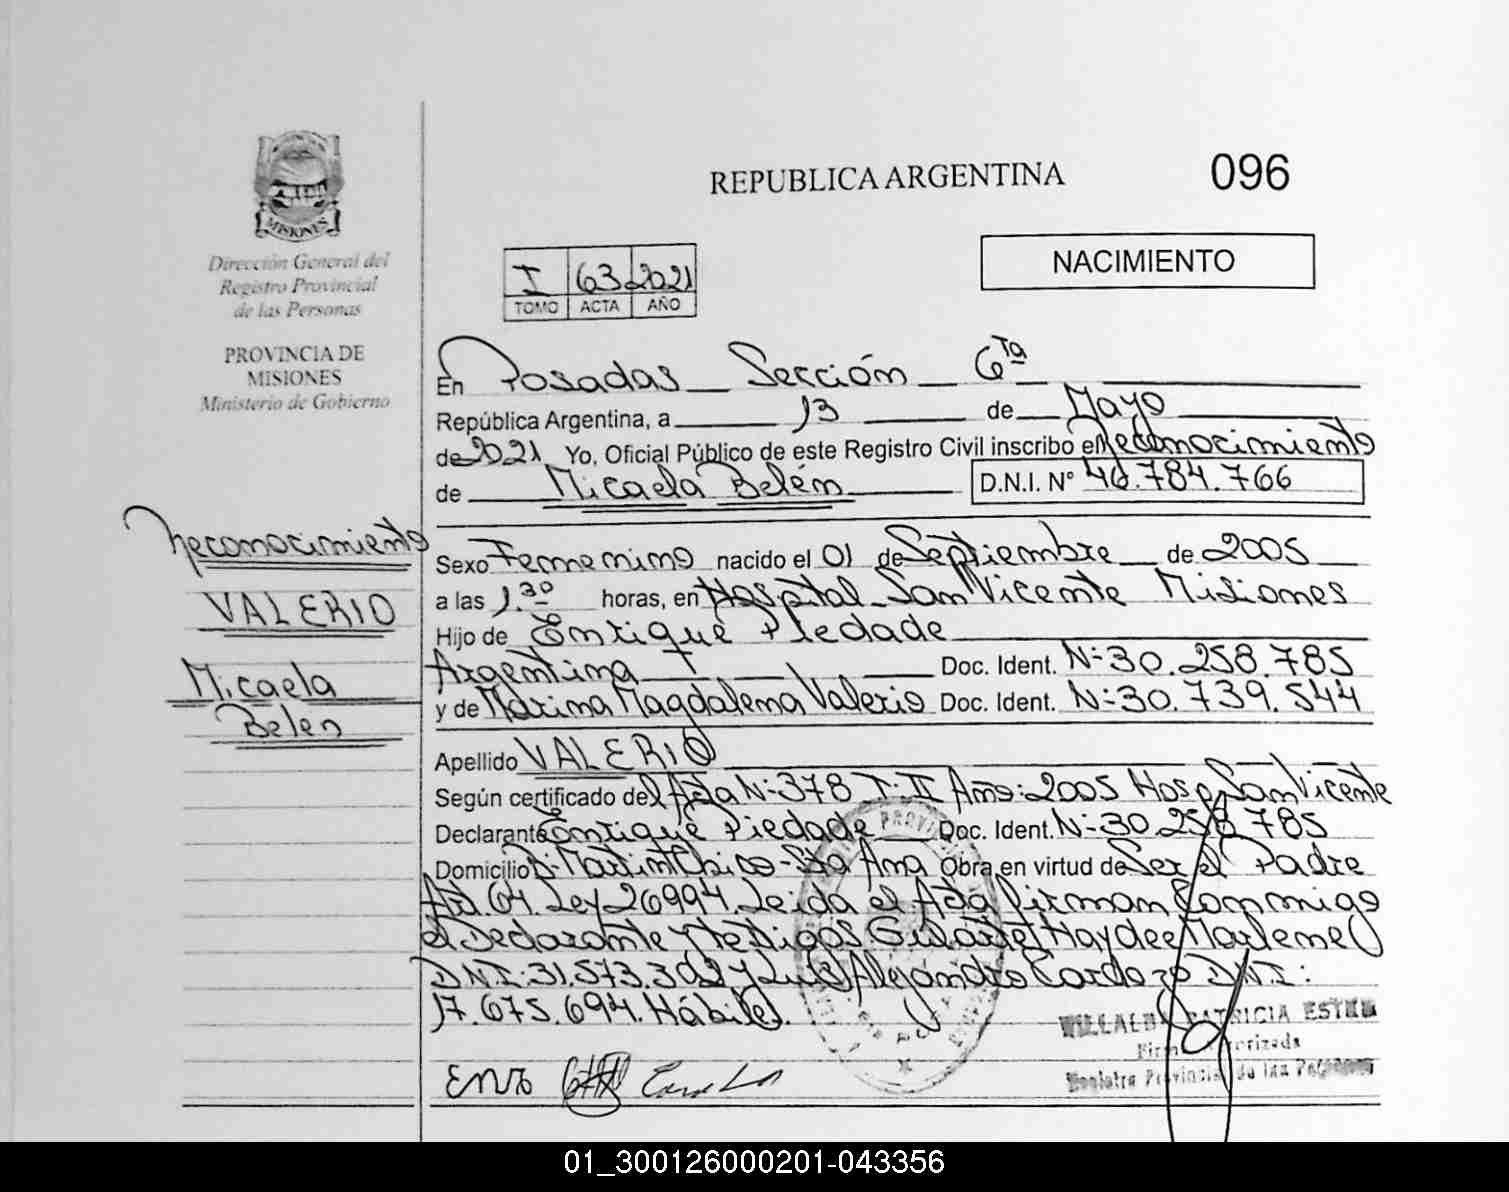 REPUBLICA ARGENTINA
096
MISIONES
Dirección General del
Registro Provincial
de las Personas
PROVINCIA DE
MISIONES
Ministerio de Gobierno
I 63 2021
TOMO ACTA AÑO
NACIMIENTO
En Posadas Sección 6ta
República Argentina, a 13 de Mayo
de 2021 Yo, Oficial Público de este Registro Civil inscribo el Reconocimiento
de Micaela Belém D.N.I. Nº 46.784.766
Reconocimiento
VALERIO
Micaela
Belen
Sexo Femenino nacido el 01 de Septiembre de 2005
a las 1.30 horas, en Hospital San Vicente Misiones
Hijo de Enrique Piedade
Argentina Doc. Ident. Nº 30.258.785
y de Marina Magdalena Valerio Doc. Ident. Nº 30.739.544
Apellido VALERIO
Según certificado del Acta Nº 378 T: II Año: 2005 Hosp San Vicente
Declarante Enrique Piedade Doc. Ident. Nº 30.258.785
Domicilio Bº Martin Chico - Sta Ana Obra en virtud de Ser el Padre
Art. 64. Ley 26994. Leida el Acta firman Conmigo
el Declarante y testigos Haydee Marlene
DNI: 31.573.302 y Luis Alejandro Cardozo DNI:
17.675.694. Hábiles.
VILLALBA PATRICIA ESTER
Firma Autorizada
Registro Provincial de las Personas
01_300126000201-043356